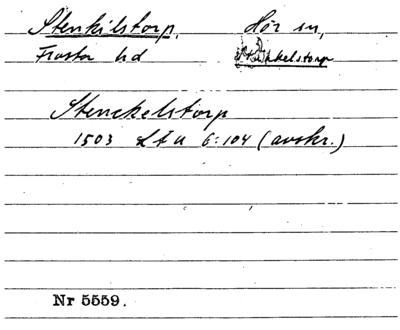 Stenkilstorp, Hör sn,
Frosta hd
Stenckelstorp
1503 LÄU 6:104 (avskr.)
Nr 5559.